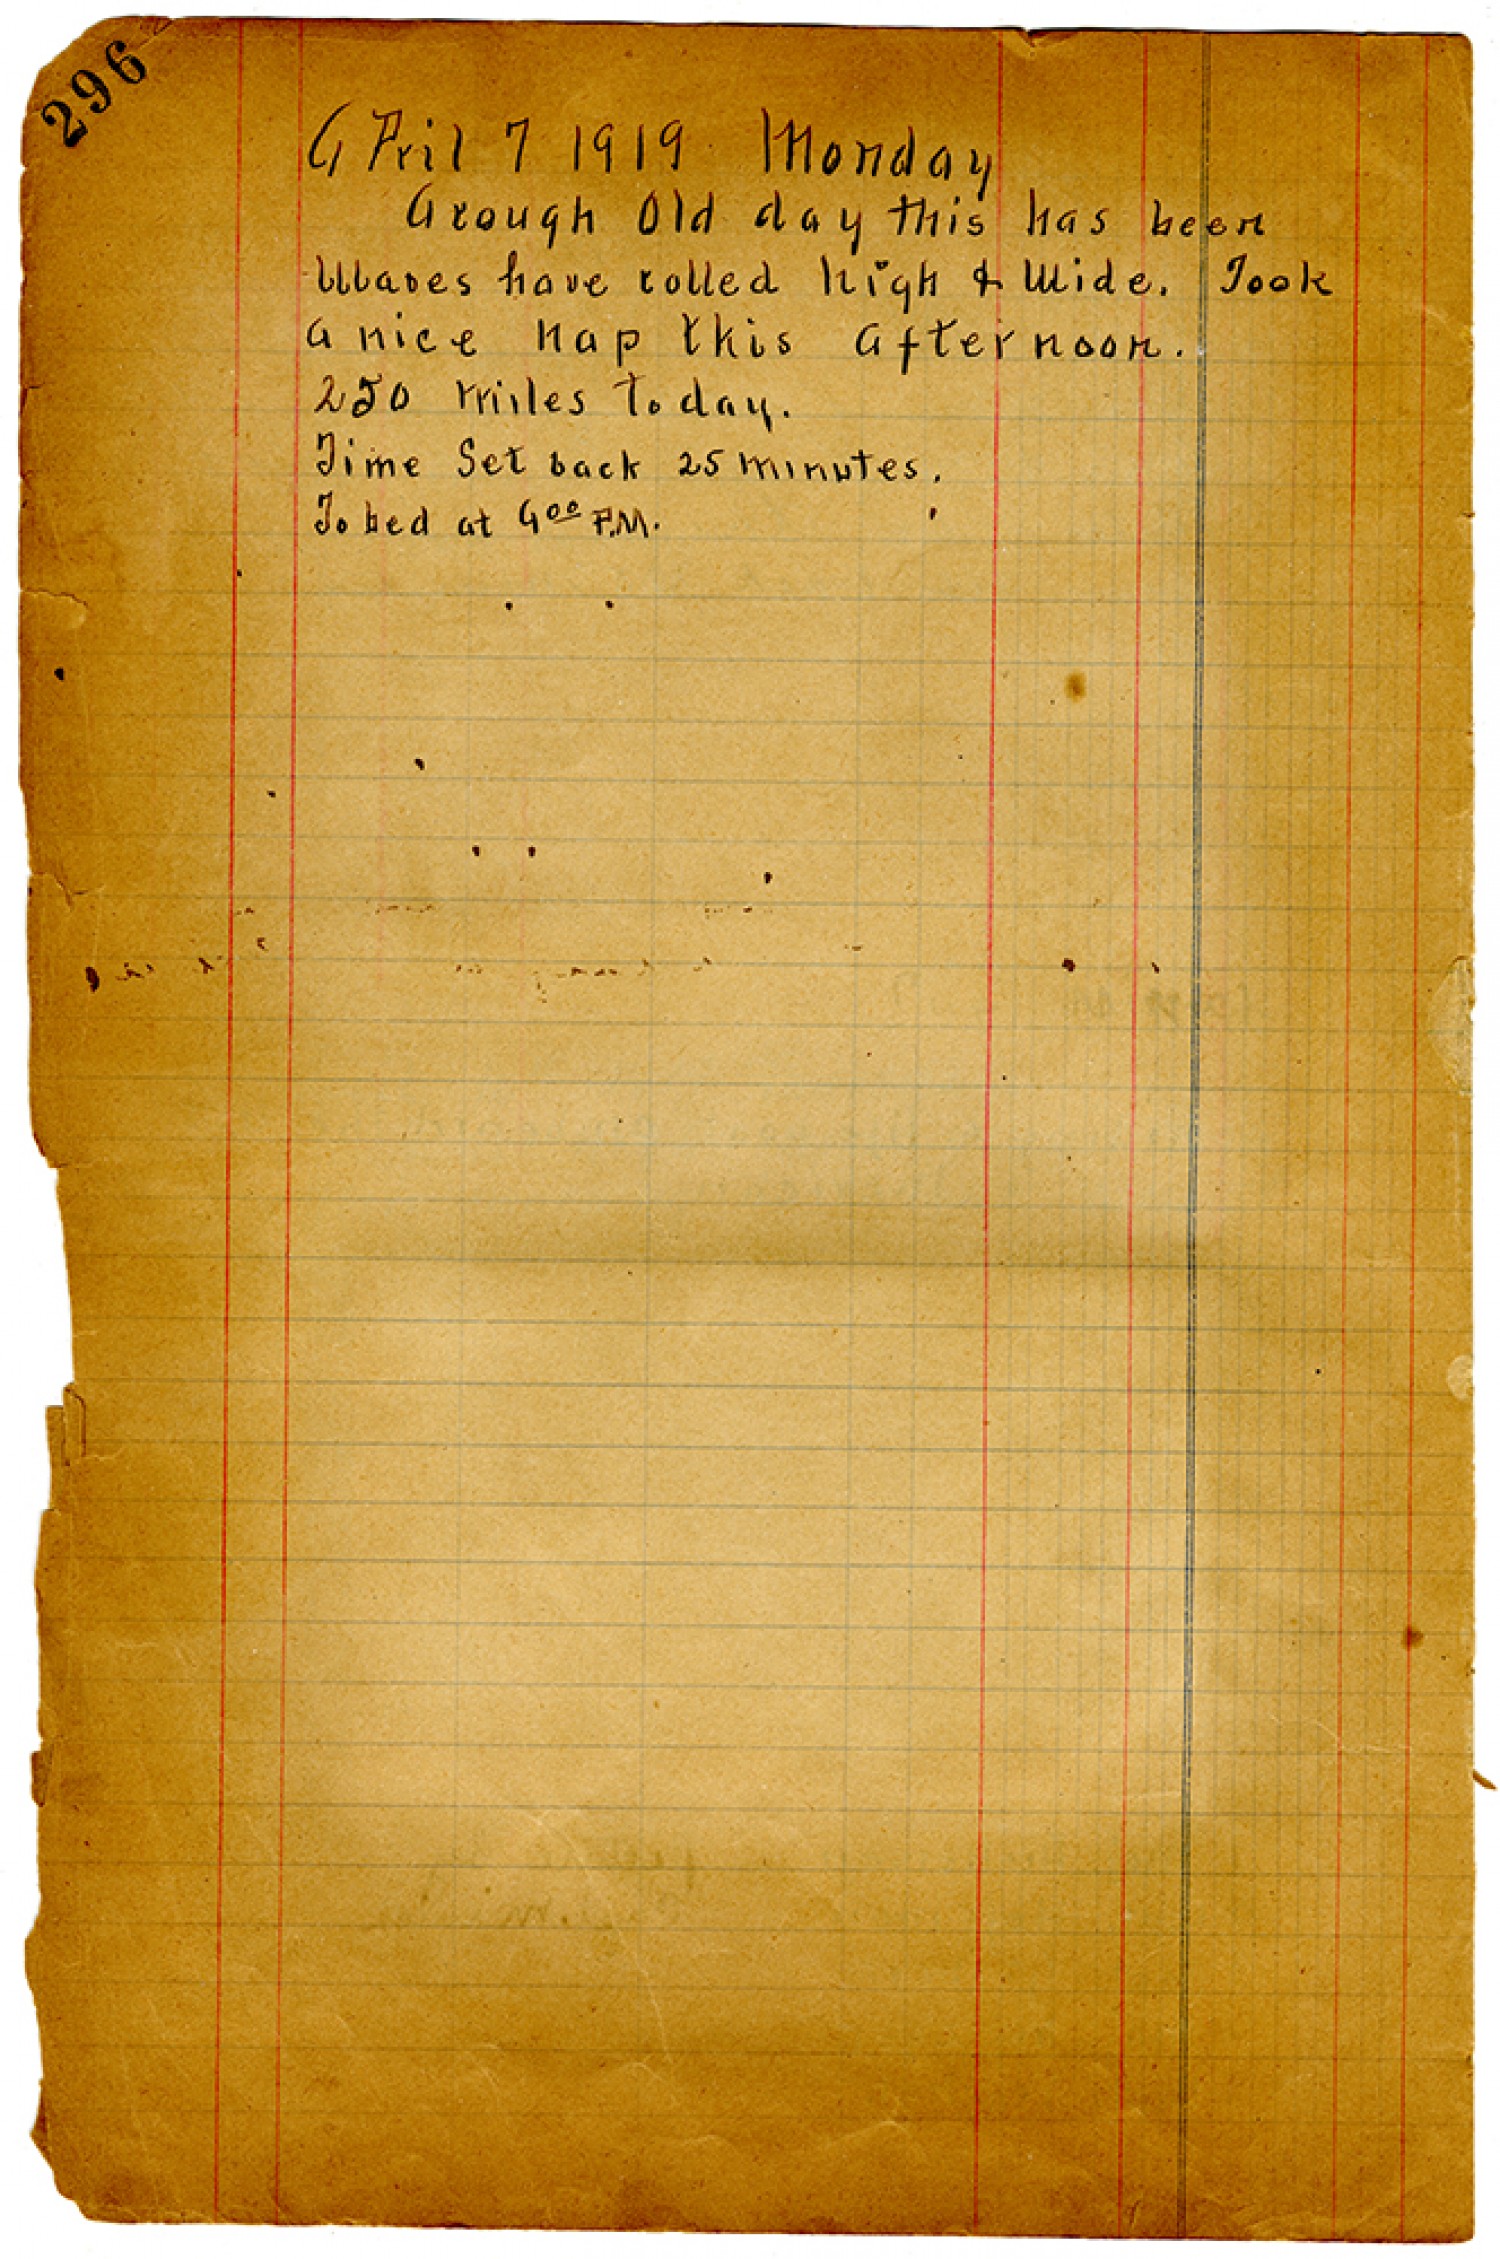 296
April 7 1919 Monday
A rough Old day this has been
Waves have rolled high & Wide. Took
a nice nap this afternoon.
250 miles today.
Time Set back 25 minutes.
To bed at 9⁰⁰ P.M.